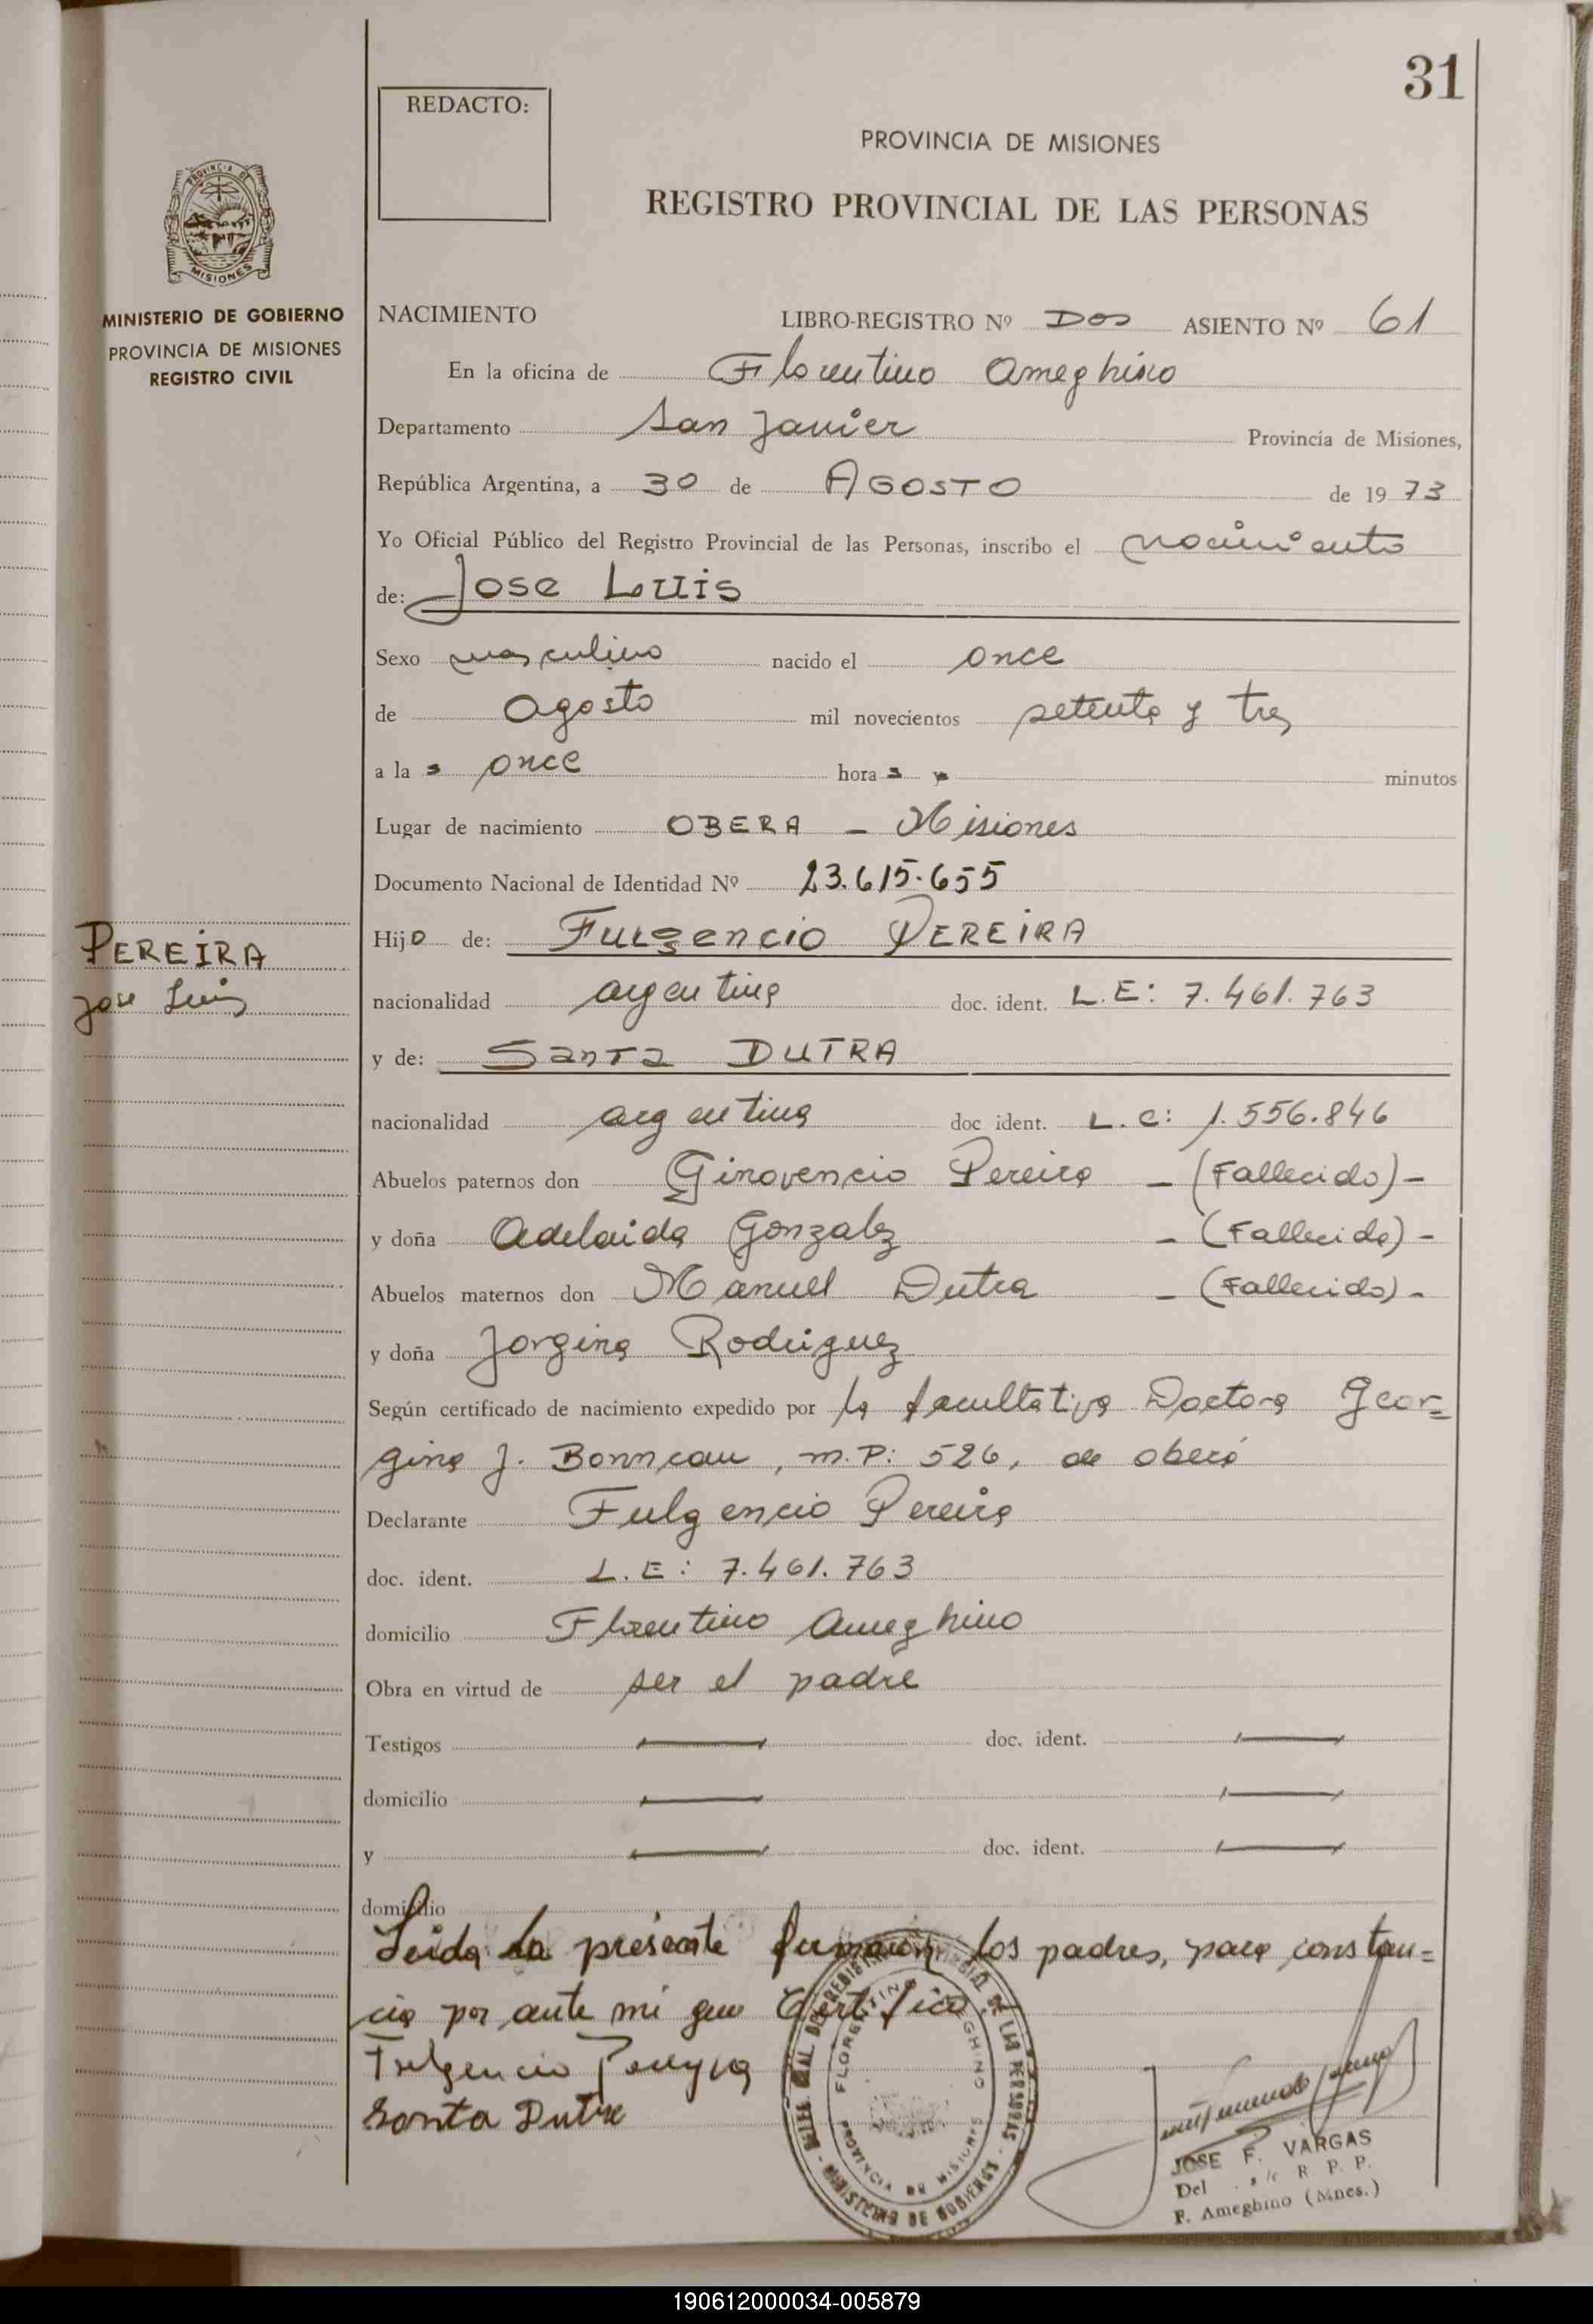 31
REDACTO:
PROVINCIA DE MISIONES
REGISTRO PROVINCIAL DE LAS PERSONAS
PROVINCIA DE
MISIONES
MINISTERIO DE GOBIERNO
PROVINCIA DE MISIONES
REGISTRO CIVIL
NACIMIENTO LIBRO-REGISTRO Nº Dos ASIENTO Nº 61
En la oficina de Florentino Ameghino
Departamento San Javier Provincia de Misiones,
República Argentina, a 30 de AGOSTO de 1973
Yo Oficial Público del Registro Provincial de las Personas, inscribo el nacimiento
de: Jose Luis
Sexo masculino nacido el once
de agosto mil novecientos setenta y tres
a las once horas minutos
Lugar de nacimiento OBERA - Misiones
Documento Nacional de Identidad Nº 23.615.655
PEREIRA
Jose Luis
Hijo de: Fulgencio PEREIRA
nacionalidad argentina doc. ident. L.E: 7.461.763
y de: Santa DUTRA
nacionalidad argentina doc ident. L.C: 1.556.846
Abuelos paternos don Ginovencio Pereira - (Fallecido) -
y doña Adelaida Gonzalez - (Fallecida) -
Abuelos maternos don Manuel Dutra - (Fallecido) -
y doña Jorgina Rodriguez
Según certificado de nacimiento expedido por la facultativa Doctora Geor=
gina J. Bonneau, m.P: 526, de oberá
Declarante Fulgencio Pereira
doc. ident. L.E: 7.461.763
domicilio Florentino Ameghino
Obra en virtud de ser el padre
Testigos doc. ident.
domicilio
y doc. ident.
domicilio
Leida la presente firmaron los padres, para constan=
cia por ante mi que Certifico
Fulgencio Pereyra
Santa Dutra
REGISTRO PROVINCIAL DE LAS PERSONAS - MINISTERIO DE GOBIERNO
FLORENTINO AMEGHINO
PROVINCIA DE MISIONES
JOSE F. VARGAS
Del R. P. P.
F. Ameghino (Mnes.)
190612000034-005879